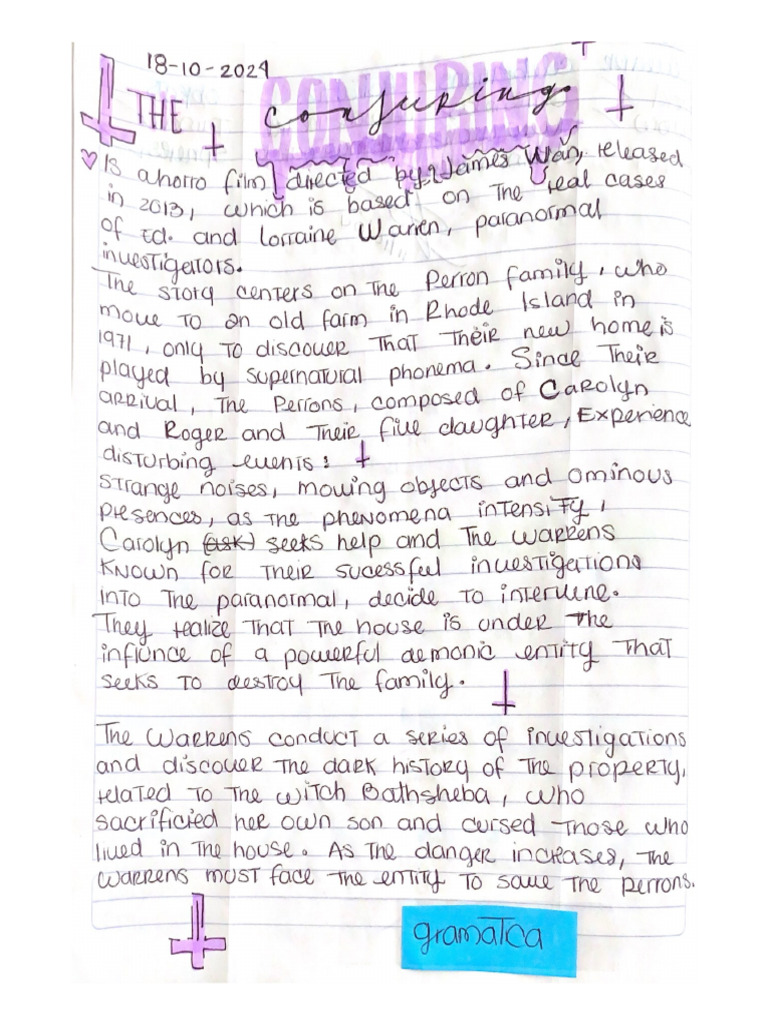 18-10-2024
CONJURING
THE conjuring.
Is ahorro film directed by James Wan, released
in 2013, which is based on the real cases
of Ed. and Lorraine Warren, paranormal
investigators.
The story centers on the Perron family, who
move to an old farm in Rhode Island in
1971, only to discover that their new home is
played by supernatural phonema. Since their
arrival, the Perrons, composed of Carolyn
and Roger and their five daughter, Experience
disturbing events:
strange noises, moving objects and ominous
presences, as the phenomena intensify,
Carolyn (ask) seeks help and the Warrens
known for their sucessful investigations
into the paranormal, decide to intervene.
They realize that the house is under the
influnce of a powerful demonic entity that
seeks to destroy the family.
The Warrens conduct a series of investigations
and discover the dark history of the property,
related to the witch Bathsheba, who
sacrificied her own son and cursed those who
lived in the house. As the danger increases, the
Warrens must face the entity to save the perrons.
gramatca